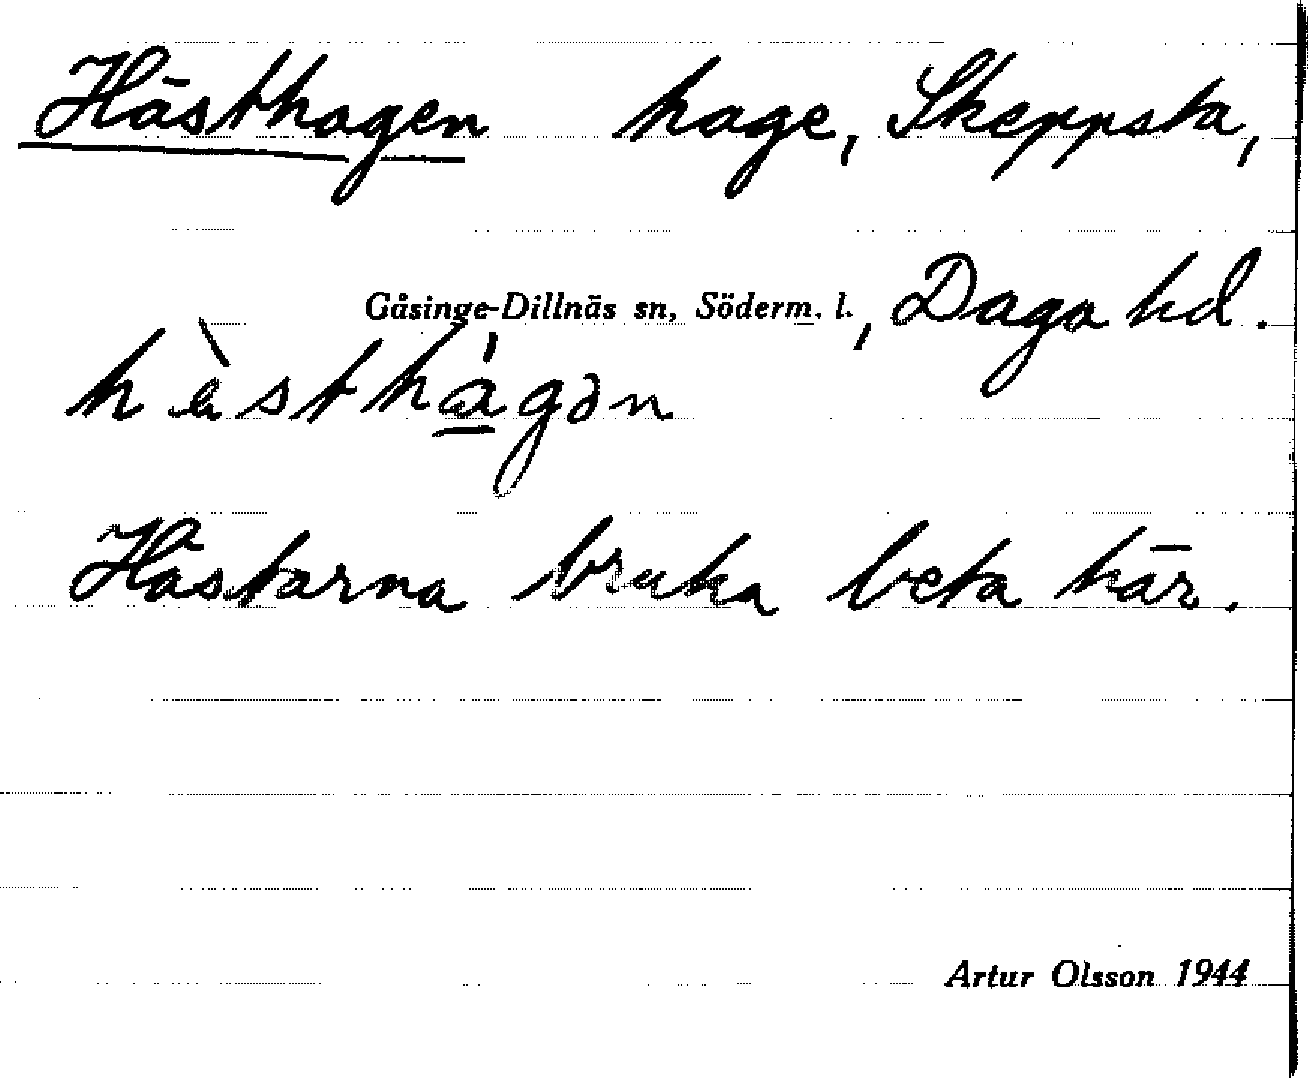 Hästhagen hage, Skeppsta,
Gåsinge-Dillnäs sn, Söderm. l., Daga hd.
hä̀sthágən
Hästarna bruka beta här.
Artur Olsson 1944